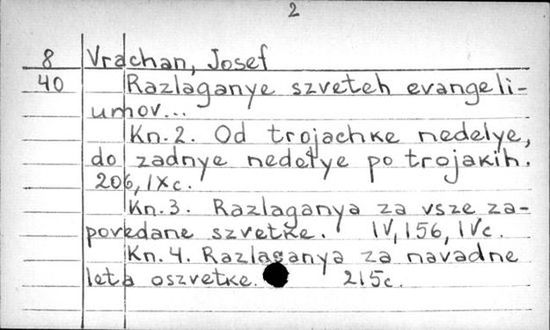 2
8 Vrachan, Josef
40 Razlaganye szveteh evangeli-
umov...
Kn. 2. Od trojachke nedelye,
do zadnye nedelye po trojakih.
206, IXc.
Kn. 3. Razlaganya za vsze za-
povedane szvetke. IV, 156, IVc.
Kn. 4. Razlaganya za navadne
leta oszvetke. 215c.